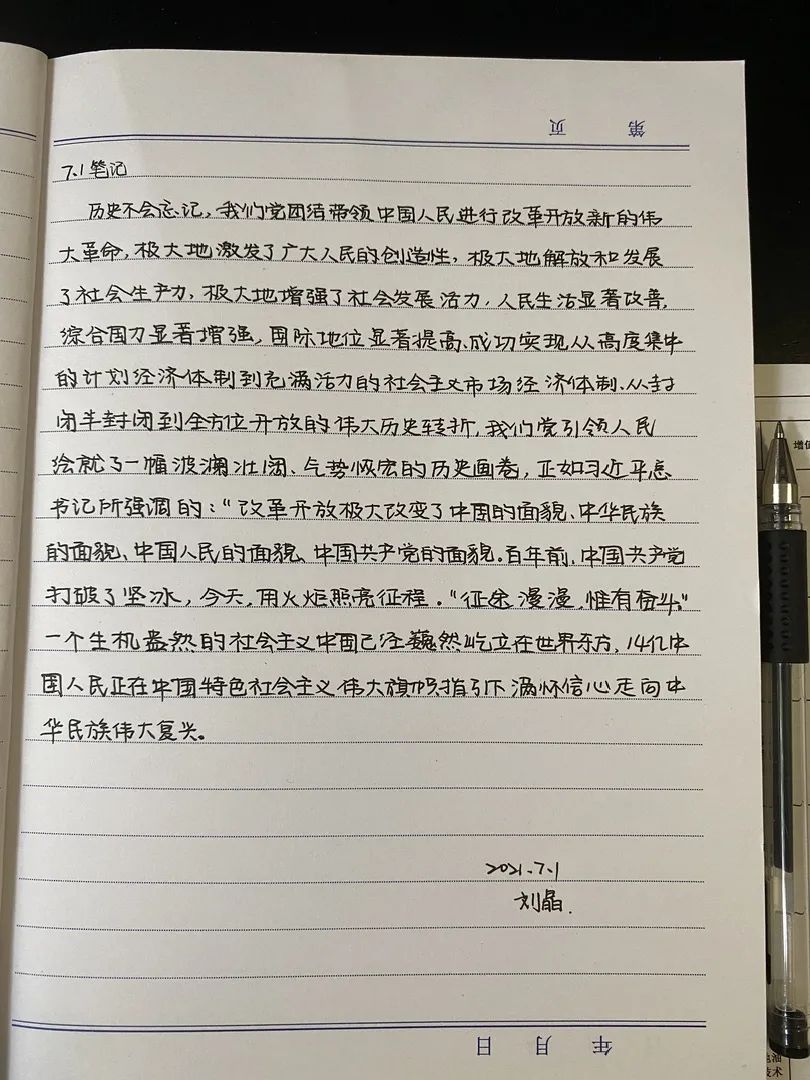 第 页
7.1笔记
历史不会忘记，我们党团结带领中国人民进行改革开放新的伟
大革命，极大地激发了广大人民的创造性，极大地解放和发展
了社会生产力，极大地增强了社会发展活力，人民生活显著改善，
综合国力显著增强，国际地位显著提高、成功实现从高度集中
的计划经济体制到充满活力的社会主义市场经济体制、从封
闭半封闭到全方位开放的伟大历史转折，我们党引领人民
绘就了一幅波澜壮阔、气势恢宏的历史画卷，正如习近平总
书记所强调的：“改革开放极大改变了中国的面貌、中华民族
的面貌、中国人民的面貌、中国共产党的面貌。百年前，中国共产党
打破了坚冰，今天，用火炬照亮征程。“征途漫漫，惟有奋斗”
一个生机盎然的社会主义中国已经巍然屹立在世界东方，14亿中
国人民正在中国特色社会主义伟大旗帜指引下满怀信心走向中
华民族伟大复兴。
2021.7.1
刘晶.
年 月 日
增值
电油
技术